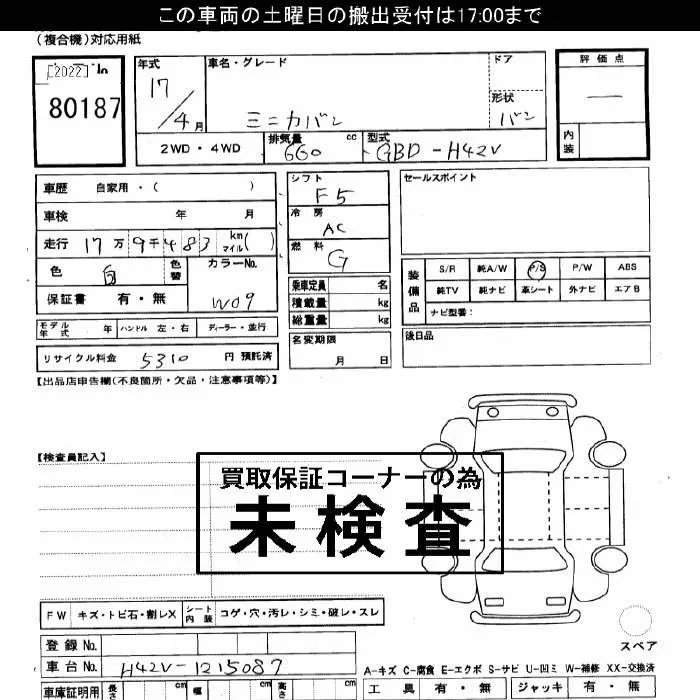 この車両の土曜日の搬出受付は17:00まで
(複合機)対応用紙
[2022] in
80187
年式 17/4月
車名・グレード ミニカバン
ドア
形状 バン
評価点 ―
内装
2WD・4WD
排気量 660 cc
型式 GBD-H42V
車歴 自家用・( )
車検 年 月
走行 17万9千483 km マイル( )
色 白 色替
カラーNo. W09
保証書 有・無
モデル年式 年 ハンドル 左・右 ディーラー・並行
リサイクル料金 5310 円 預託済
シフト F5
冷房 AC
燃料 G
乗車定員 名
積載量 kg
総重量 kg
名変期限 月 日
セールスポイント
装備品
S/R 純A/W P/S P/W ABS
純TV 純ナビ 革シート 外ナビ エアB
ナビ型番：
後日品
【出品店申告欄(不良箇所・欠品・注意事項等)】
【検査員記入】
買取保証コーナーの為
未検査
FW キズ・トビ石・割レX シート内装 コゲ・穴・汚レ・シミ・破レ・スレ
登録No.
車台No. H42V-1215087
車庫証明用 長さ cm 幅 cm 高さ cm
スペア
A-キズ C-腐食 E-エクボ S-サビ U-凹ミ W-補修 XX-交換済
工具 有・無 ジャッキ 有・無